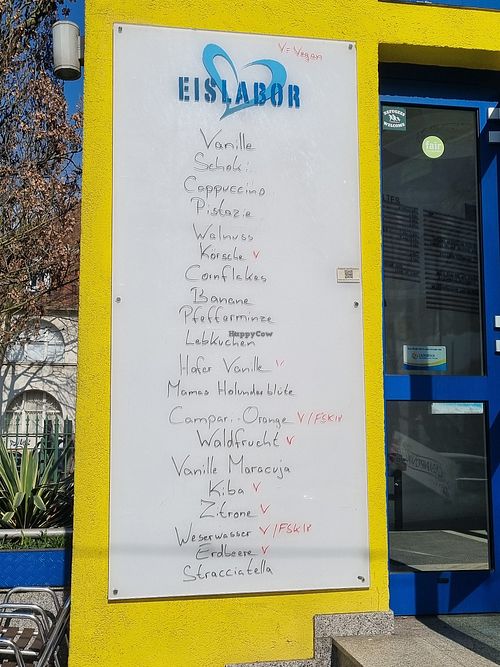 V = Vegan
EISLABOR
Vanille
Schoki
Cappuccino
Pistazie
Walnuss
Korsche V
Cornflakes
Banane
Pfefferminze
HappyCow
Lebkuchen
Hafer Vanille V
Mamas Holunderblüte
Campari-Orange V / FSK 18
Waldfrucht V
Vanille Maracuja
Kiba V
Zitrone V
Weserwasser V / FSK 18
Erdbeere V
Stracciatella
REFUGEES
WELCOME
fair